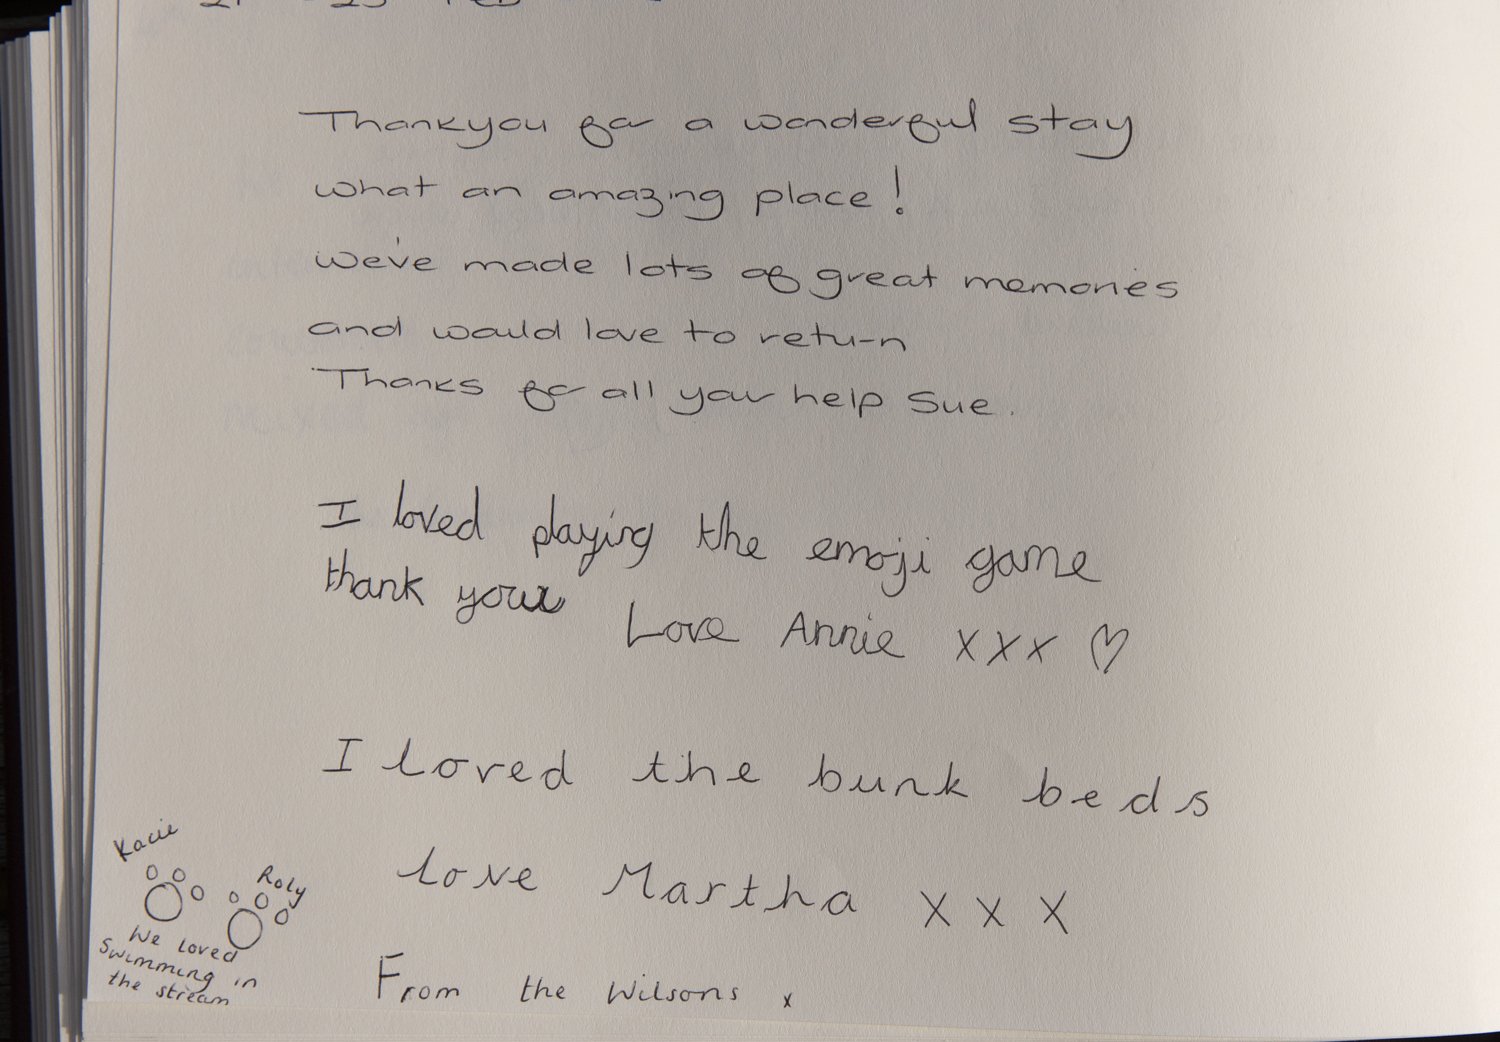 Thankyou for a wonderful stay
what an amazing place!
we've made lots of great memories
and would love to return
Thanks for all your help Sue.
I loved playing the emoji game
thank you
Love Annie xxx ♡
I loved the bunk beds
love Martha x x x
From the Wilsons x
Kacie
Roly
We loved
swimming in
the stream